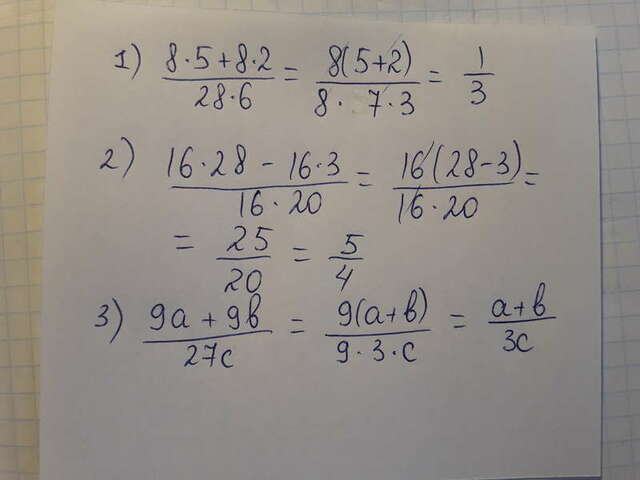 1) (8·5+8·2)/(28·6) = 8(5+2)/(8· 7·3) = 1/3
2) (16·28 - 16·3)/(16·20) = 16(28-3)/(16·20) =
= 25/20 = 5/4
3) (9a + 9b)/(27c) = 9(a+b)/(9·3·c) = (a+b)/(3c)